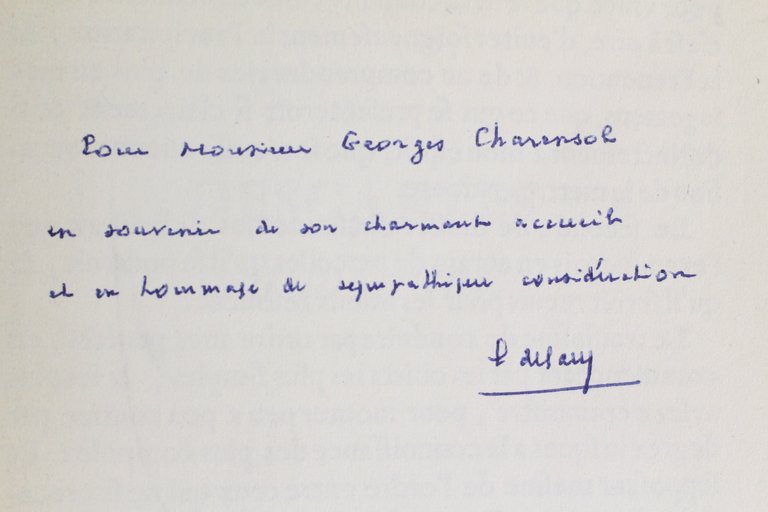 Pour Monsieur Georges Charensol
en souvenir de son charmant accueil
et en hommage de sympathique considération